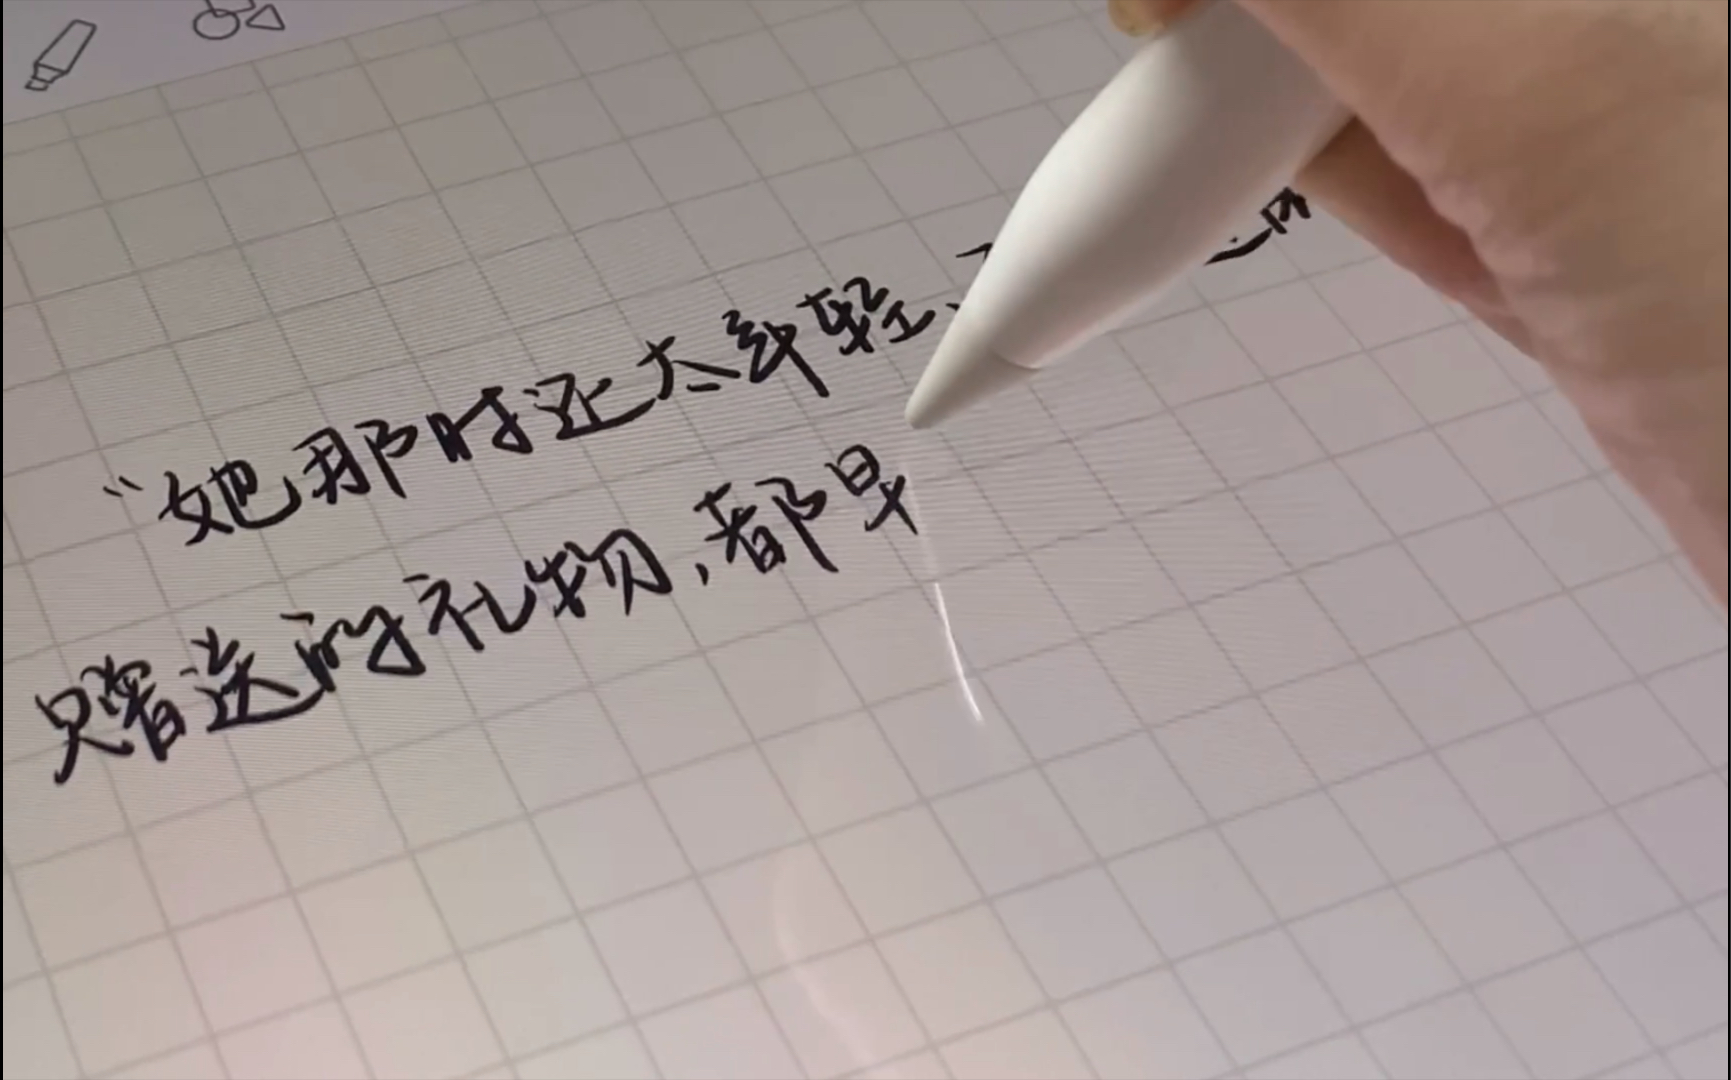 “她那时还太年轻、
赠送的礼物,都早